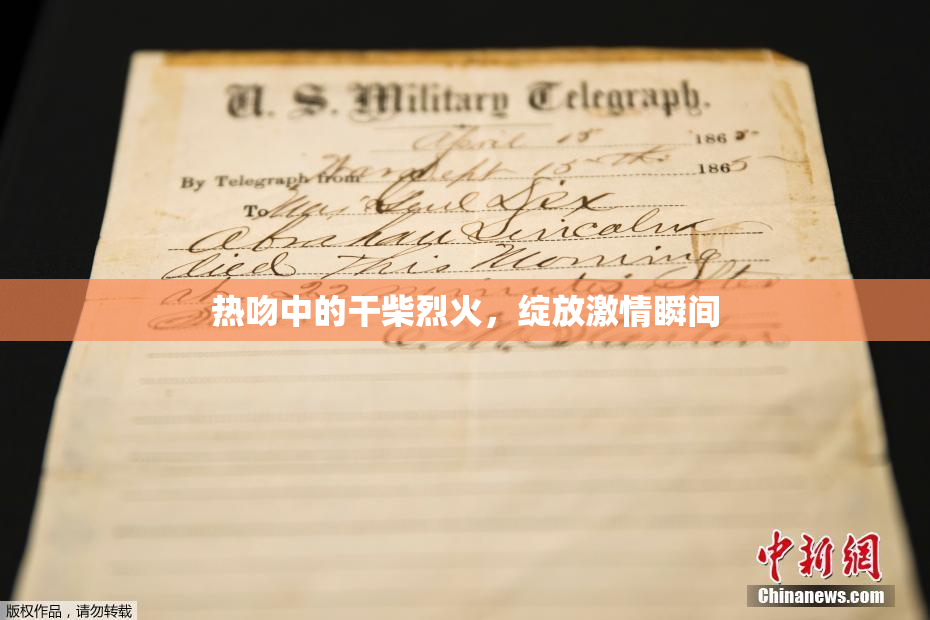 U. S. Military Telegraph.
April 15 1865
By Telegraph from War Dept 15th 1865
To Maj Genl Dix
Abraham Lincoln
died This Morning
at 22 minutes after
热吻中的干柴烈火，绽放激情瞬间
E. M. Stanton
中新网
Chinanews.com
版权作品，请勿转载